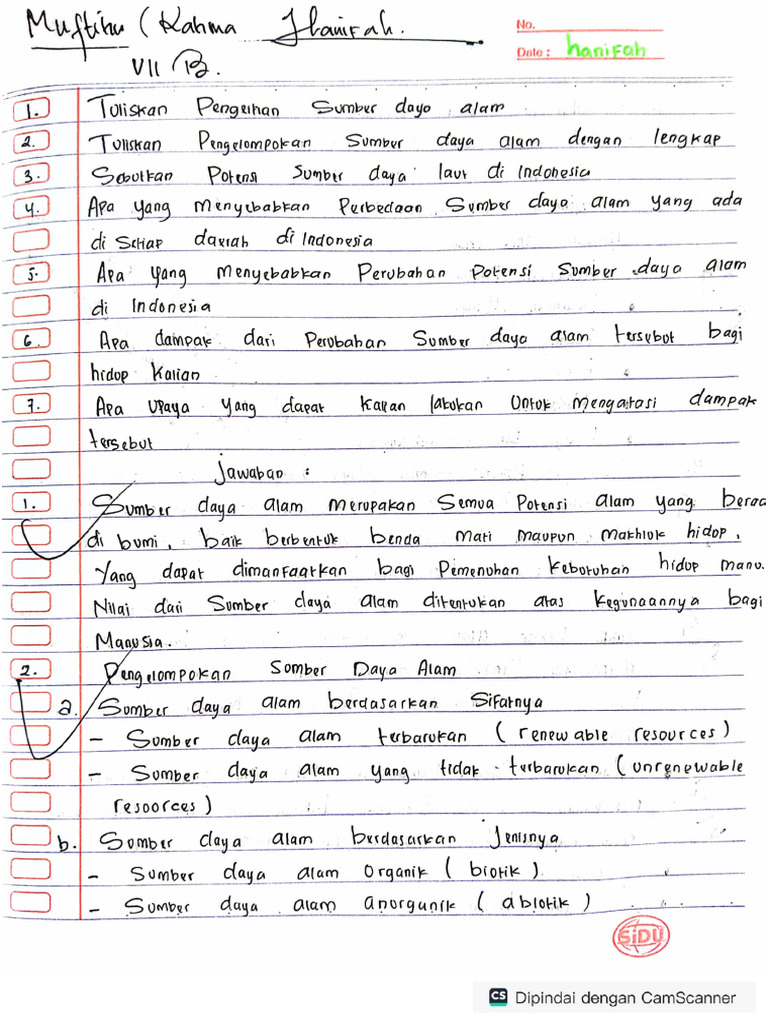 Muftihu (Rahma Hanifah.
No.
Date : hanifah
VII B.
1. Tuliskan Pengertian Sumber daya alam
2. Tuliskan Pengelompokan Sumber daya alam dengan lengkap
3. Sebutkan Potensi Sumber daya laut di Indonesia
4. Apa yang menyebabkan Perbedaan Sumber daya alam yang ada
di Setiap daerah di Indonesia
5. Apa yang menyebabkan Perubahan Potensi Sumber daya alam
di Indonesia
6. Apa dampak dari Perubahan Sumber daya alam tersebut bagi
hidup Kalian
7. Apa Upaya yang dapat Kalian lakukan Untuk mengatasi dampak
tersebut
Jawaban :
1. Sumber daya alam merupakan Semua Potensi alam yang berad
di bumi, baik berbentuk benda mati maupun makhluk hidup,
Yang dapat dimanfaatkan bagi Pemenuhan Kebutuhan hidup manu.
Nilai dari Sumber daya alam ditentukan atas Kegunaannya bagi
Manusia.
2. Pengelompokan Sumber Daya Alam
a. Sumber daya alam berdasarkan Sifatnya
- Sumber daya alam terbarukan (renewable resources)
- Sumber daya alam yang tidak terbarukan (unrenewable
resources)
b. Sumber daya alam berdasarkan Jenisnya
- Sumber daya alam Organik (biotik)
- Sumber daya alam anorganik (abiotik)
SiDU
CS Dipindai dengan CamScanner